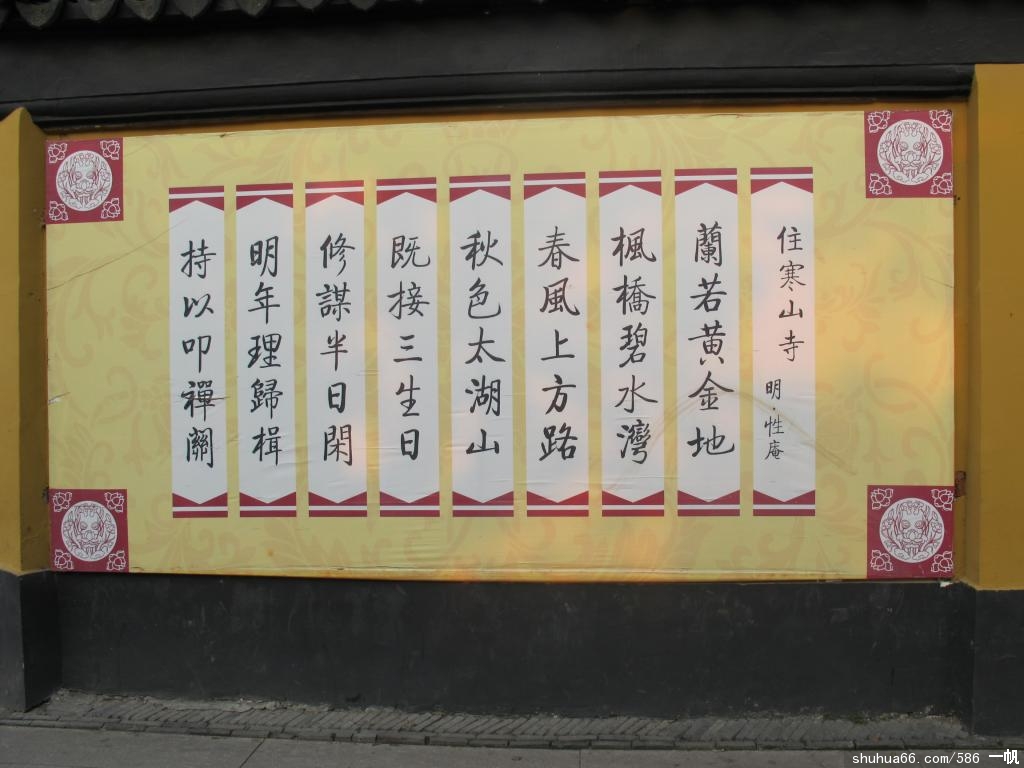 住寒山寺 明·性庵
蘭若黄金地
楓橋碧水灣
春風上方路
秋色太湖山
既接三生日
修謀半日閑
明年理歸楫
持以叩禪關
shuhua66.com/586 一帆